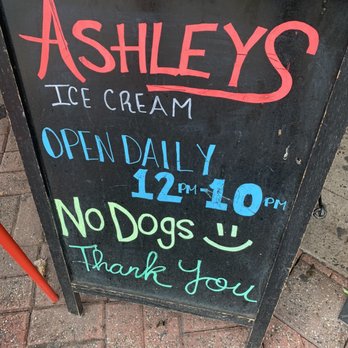 ASHLEYS
ICE CREAM
OPEN DAILY
12PM-10PM
No Dogs
Thank You